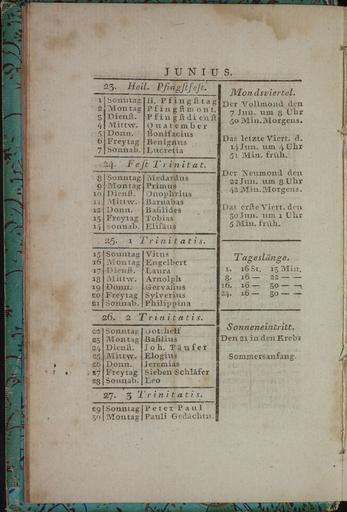 JUNIUS.
23. Heil. Pfingstfest.
1 Sonntag H. Pfingstag
2 Montag Pfingstmont.
3 Dienst. Pfingstdienst
4 Mittw. Quatember
5 Donn. Bonifacius
6 Freytag Benignus
7 Sonnab. Lucretia
24. Fest Trinitat.
8 Sonntag Medardus
9 Montag Primus
10 Dienst. Onophrius
11 Mittw. Barnabas
12 Donn. Basilides
13 Freytag Tobias
14 sonnab. Elisäus
25. 1 Trinitatis.
15 Sonntag Vitus
16 Montag Engelbert
17 Dienst. Laura
18 Mittw. Arnolph
19 Donn. Gervasius
20 Freytag Sylverius
21 Sonnab. Philippina
26. 2 Trinitatis.
22 Sonntag Gotthelf
23 Montag Basilius
24 Dienst. Joh. Täufer
25 Mittw. Elogius
26 Donn. Jeremias
27 Freytag Sieben Schläfer
28 Sonnab. Leo
27. 3 Trinitatis.
29 Sonntag Peter Paul
30 Montag Pauli Gedächtn.
Mondsviertel.
Der Vollmond den
7 Jun. um 8 Uhr
50 Min. Morgens.
Das letzte Viert. d.
14 Jun. um 4 Uhr
51 Min. früh.
Der Neumond den
22 Jun. um 8 Uhr
42 Min. Morgens.
Das erste Viert. den
30 Jun. um 1 Uhr
5 Min. früh.
Tageslänge.
1. 16 St. 15 Min.
8. 16 — 22 — —
16. 16 — 30 — —
24. 16 — 30 — —
Sonneneintritt.
Den 21 in den Krebs
Sommersanfang.